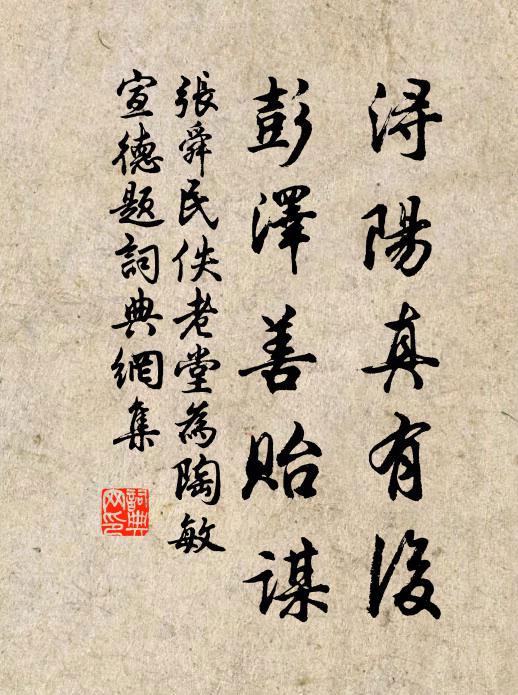 浔陽真有後
彭澤善貽謀
張舜民佚老堂為陶敏
宣德題詞典網集
詞典
网印